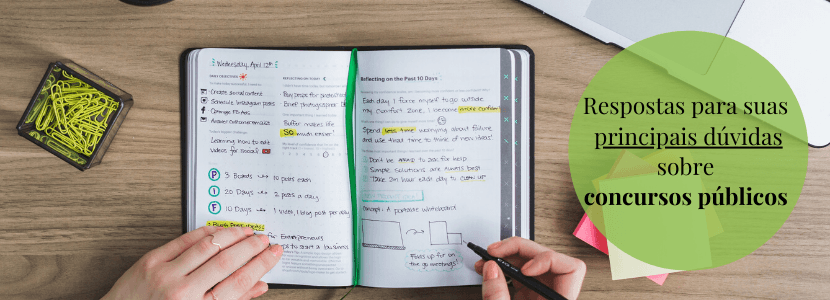 Wednesday, April 12th
DAILY OBJECTIVES
Create social content
Schedule Instagram posts
Answer customer emails
Learning how to edit
videos for social!
P 3 Boards 10 posts each
I 20 Days 2 posts a day
F 10 Days 1 video, 1 blog post per day
for Entrepreneurs
to start a business
REFLECTING ON TODAY
Buy props for photoshoot
Brief photographer
Buffer makes life
SO much easier!
Reflecting on the Past 10 Days
Each day I force myself to go outside
my comfort zone, I become more confident
Spend less time worrying about failure
and use that time to think of new ideas!
Don't be afraid to ask for help
Simple solutions are always best
Take an hour each day to catch up
Concept: A portable whiteboard
Folds up for on
the go meetings!
Respostas para suas
principais dúvidas
sobre
concursos públicos